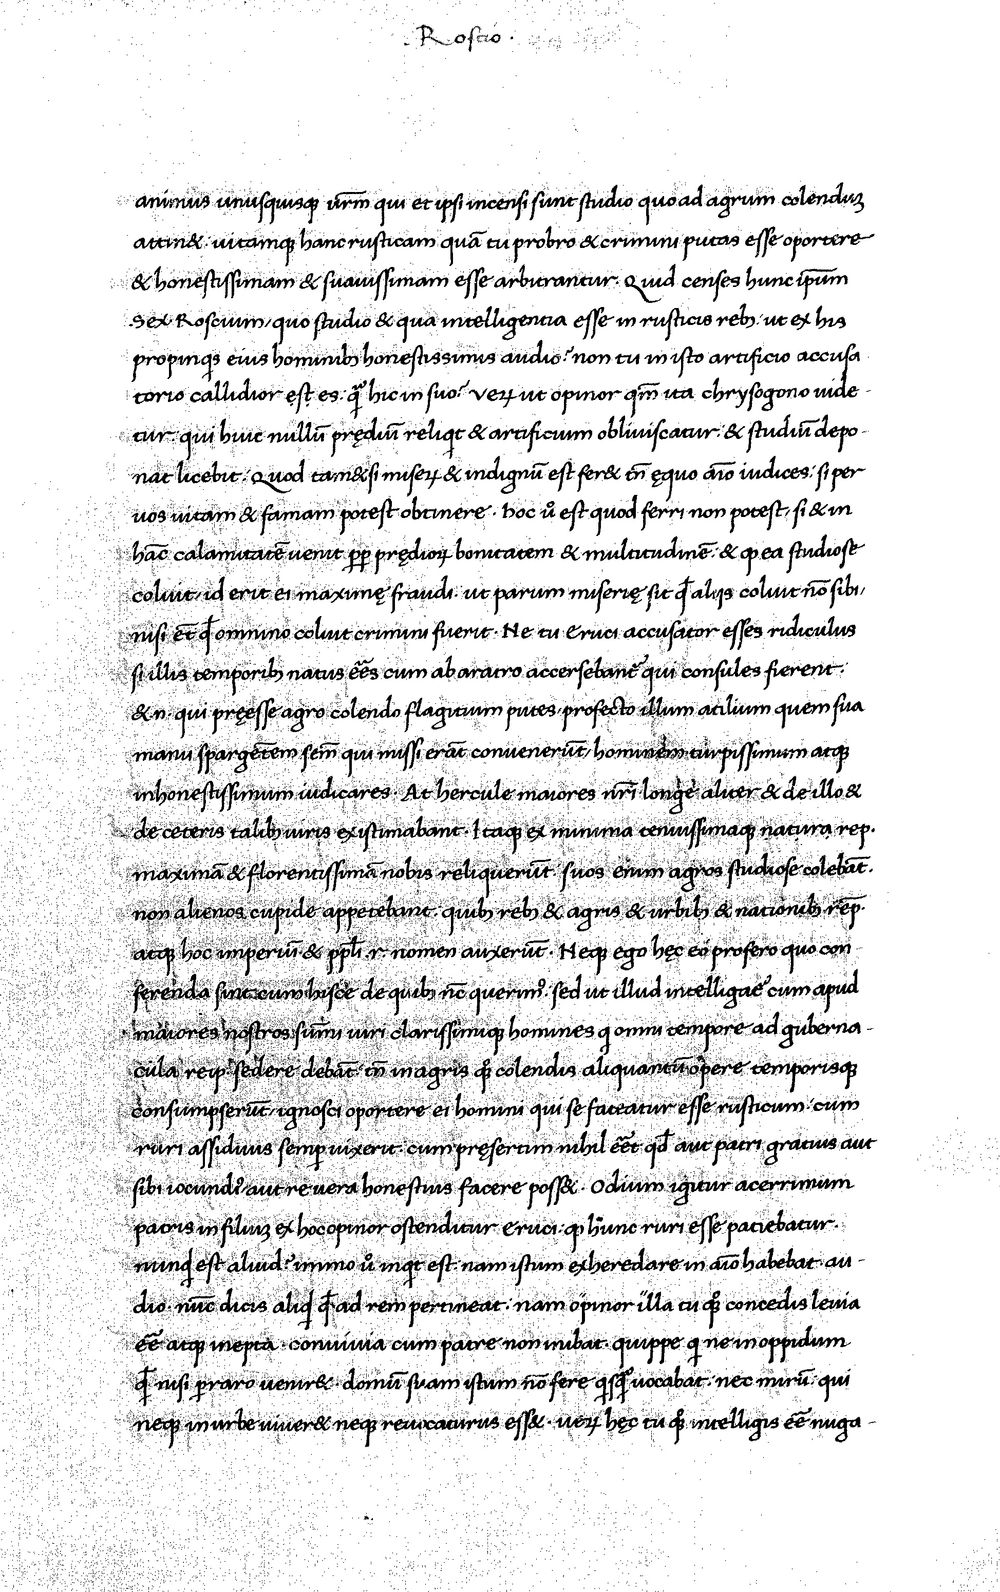 . Roscio .
animus unusquisqꝫ ur̄m qui et ipsi incensi sunt studio quo ad agrum colenduꝫ
attin&. uitamqꝫ hanc rusticam quā tu probro & crimini putas esse oportere
& honestissimam & suauissimam esse arbitrantur. Quid censes hunc ip̄um
Sex Roscium, quo studio & qua intelligentia esse in rusticis rebꝫ. ut ex his
propinqs eius hominibꝫ honestissimis audio? non tu in isto artificio accusa
torio callidior ęst es. q̄ȝ hic in suo? Veꝝ ut opinor qm̄ ita chrysogono uide-
tur. qui huic nullū prędiū reliqt & artificium obliuiscatur. & studiū depo-
nat licebit. Quod tam&si miseꝝ & indignū est fer& tn̄ ęquo aīo iudices. si per
uos uitam & famam potest obtinere. hoc ů est quod ferri non potest, si & in
hāc calamitatē uenit ꝓp prędioꝝ bonitatem & multitudinē. & ꝙ ea studiose
coluit, id erit ei maximę fraudi. ut parum miserię sit qđ aliis coluit nō sibi,
nisi et̄ qđ omnino coluit crimini fuerit. Ne tu Eruci accusator esses ridiculus
si illis temporibꝫ natus ēēs cum ab aratro accersebant᷑ qui consules fierent.
&n̄. qui pręesse agro colendo flagitium putes. profecto illum atilium quem sua
manu spargētem sem̄ qui missi erāt conuenerūt, hominem turpissimum atqꝫ
inhonestissimum iudicares. At hercule maiores nr̄i longe aliter & de illo &
de ceteris talibꝫ uiris existimabant. Itaqꝫ ex minima tenuissimaqꝫ natura rep.
maximā & florentissimā nobis reliquerūt. suos enim agros studiose colebāt.
non alienos cupide appetebant. quibꝫ rebꝫ & agris & urbibꝫ & nationibꝫ rēp.
atqꝫ hoc imperiū & ppli. r. nomen auxerūt. Neqꝫ ego hęc eo profero quo con
ferenda sint cum hisce de quibꝫ nc̄ querimꝰ. sed ut illud intelligat᷑ cum apud
maiores nostros sūmi uiri clarissimiqꝫ homines q omni tempore ad guberna-
cula reip sedere debāt tn̄ in agris qꝫ colendis aliquantū opere temporisqꝫ
consumpserūt, ignosci oportere ei homini qui se fateatur esse rusticum. cum
ruri assiduus semp uixerit. cum pręsertim nihil ēēt qđ aut patri gratius aut
sibi iocundiꝰ aut re uera honestius facere poss&. Odium igitur acerrimum
patris in filiuꝫ ex hoc opinor ostenditur Eruci. ꝙ hunc ruri esse patiebatur.
nunqđ est aliud? immo ů inqt est. nam istum exheredare in aīo habebat. au-
dio. nūc dicis aliqđ qđ ad rem pertineat. nam opinor illa tu qꝫ concedis leuia
ēē atqꝫ inepta. conuiuia cum patre non inibat. quippe q ne in oppidum
qđ nisi praro uenir&. domū suam istum nō fere qsq̄ uocabat. nec mirū. qui
neqꝫ in urbe uiuer& neqꝫ reuocaturus ess&. ueꝝ hęc tu qꝫ intelligis ēē nuga-